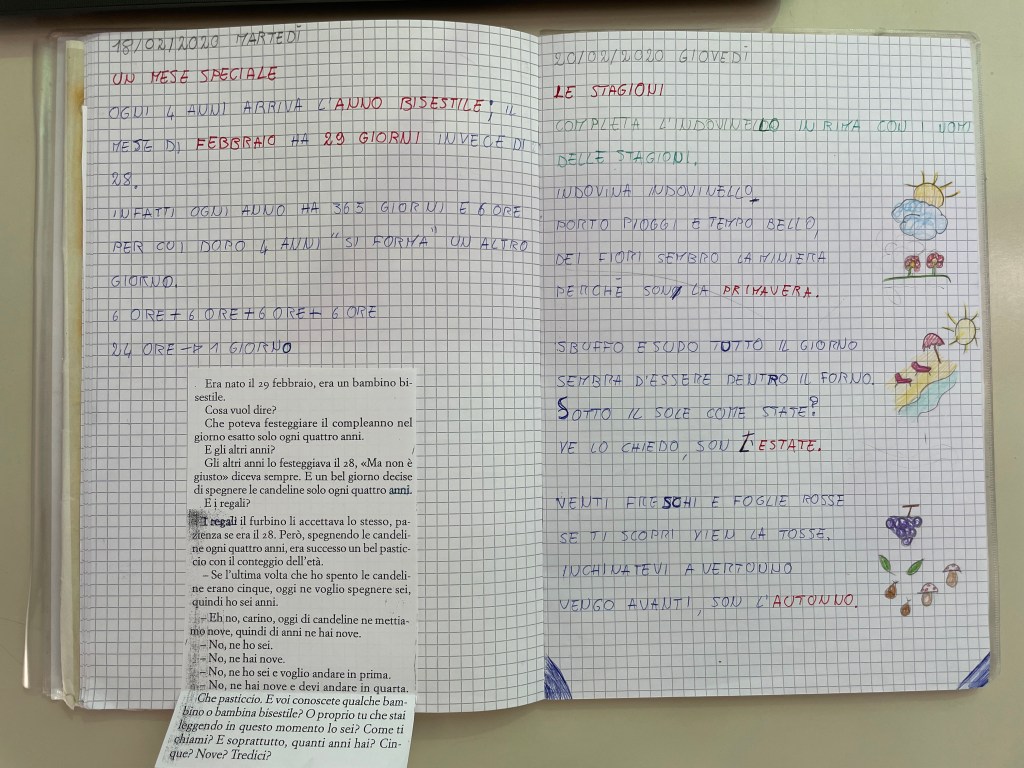 18/02/2020 MARTEDÌ
UN MESE SPECIALE
OGNI 4 ANNI ARRIVA L'ANNO BISESTILE; IL
MESE DI FEBBRAIO HA 29 GIORNI INVECE DI
28.
INFATTI OGNI ANNO HA 365 GIORNI E 6 ORE
PER CUI DOPO 4 ANNI "SI FORMA" UN ALTRO
GIORNO.
6 ORE + 6 ORE + 6 ORE + 6 ORE
24 ORE → 1 GIORNO
Era nato il 29 febbraio, era un bambino bi-
sestile.
Cosa vuol dire?
Che poteva festeggiare il compleanno nel
giorno esatto solo ogni quattro anni.
E gli altri anni?
Gli altri anni lo festeggiava il 28, «Ma non è
giusto» diceva sempre. E un bel giorno decise
di spegnere le candeline solo ogni quattro anni.
E i regali?
I regali il furbino li accettava lo stesso, pa-
zienza se era il 28. Però, spegnendo le candeli-
ne ogni quattro anni, era successo un bel pastic-
cio con il conteggio dell'età.
– Se l'ultima volta che ho spento le candeli-
ne erano cinque, oggi ne voglio spegnere sei,
quindi ho sei anni.
– Eh no, carino, oggi di candeline ne mettia-
mo nove, quindi di anni ne hai nove.
– No, ne ho sei.
– No, ne hai nove.
– No, ne ho sei e voglio andare in prima.
– No, ne hai nove e devi andare in quarta.
Che pasticcio. E voi conoscete qualche bam-
bino o bambina bisestile? O proprio tu che stai
leggendo in questo momento lo sei? Come ti
chiami? E soprattutto, quanti anni hai? Cin-
que? Nove? Tredici?
20/02/2020 GIOVEDÌ
LE STAGIONI
COMPLETA L'INDOVINELLO IN RIMA CON I NOMI
DELLE STAGIONI.
INDOVINA INDOVINELLO
PORTO PIOGGI E TEMPO BELLO,
DEI FIORI SEMBRO LA MINIERA
PERCHÈ SONO LA PRIMAVERA.
SBUFFO E SUDO TUTTO IL GIORNO
SEMBRA D'ESSERE DENTRO IL FORNO.
SOTTO IL SOLE COME STATE?
VE LO CHIEDO, SON L'ESTATE.
VENTI FRESCHI E FOGLIE ROSSE
SE TI SCOPRI VIEN LA TOSSE.
INCHINATEVI A VERTONNO
VENGO AVANTI, SON L'AUTONNO.